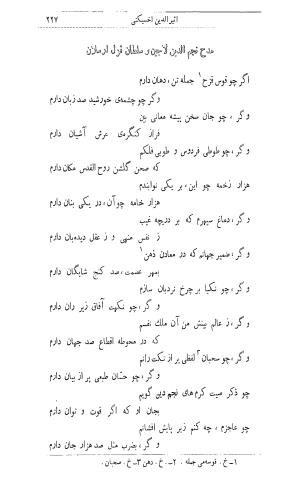 اثیرالدین اخسیکتی ۲۲۷
مدح نجم الدین لاجین و سلطان قزل ارسلان
اگر چو قوس قزح۱ جمله تن، دهان دارم
و گر چو چشمه‌ی خورشید صد زبان دارم
و گر، چو جان سخن بیشه معانی بین
فراز کنگره‌ی عرش آشیان دارم
و گر، چو طوطی فردوس و طوبی فلکم
که صحن گلشن روح القدس مکان دارم
هزار زخمه چو این، بر یکی نوابندم
هزار خامه چو آن، در یکی بنان دارم
و گر، دماغ سپهرم که بر دریچه غیب
ز نفس منهی و ز عقل دیده‌بان دارم
و گر، ضمیر جهانم که در معادن ذهن۱
بمهر عصمت، صد گنج شایگان دارم
و گر، چو نکبا بر چرخ نردبان سازم
و گر، چو نکهت آفاق زیر ران دارم
و گر، ز عالم بینش من آن ملک نفسم
که در محوطه اقطاع صد جهان دارم
و گر، چو سحبان۲ لفظی پر از نکت رانم
و گر، چو حسّان طبعی پر از بیان دارم
چو ذکر صیت کرم های نجم دین گویم
بجان او که اگر قوت و توان دارم
چو عاجزم، چه کنم زیر پایش افشانم
و گر، بضرب مثل صد هزار جان دارم
۱ـ خ. قوسمی جمله . ۲ـ . خ . دهن ۳ـ خ . صحبان .